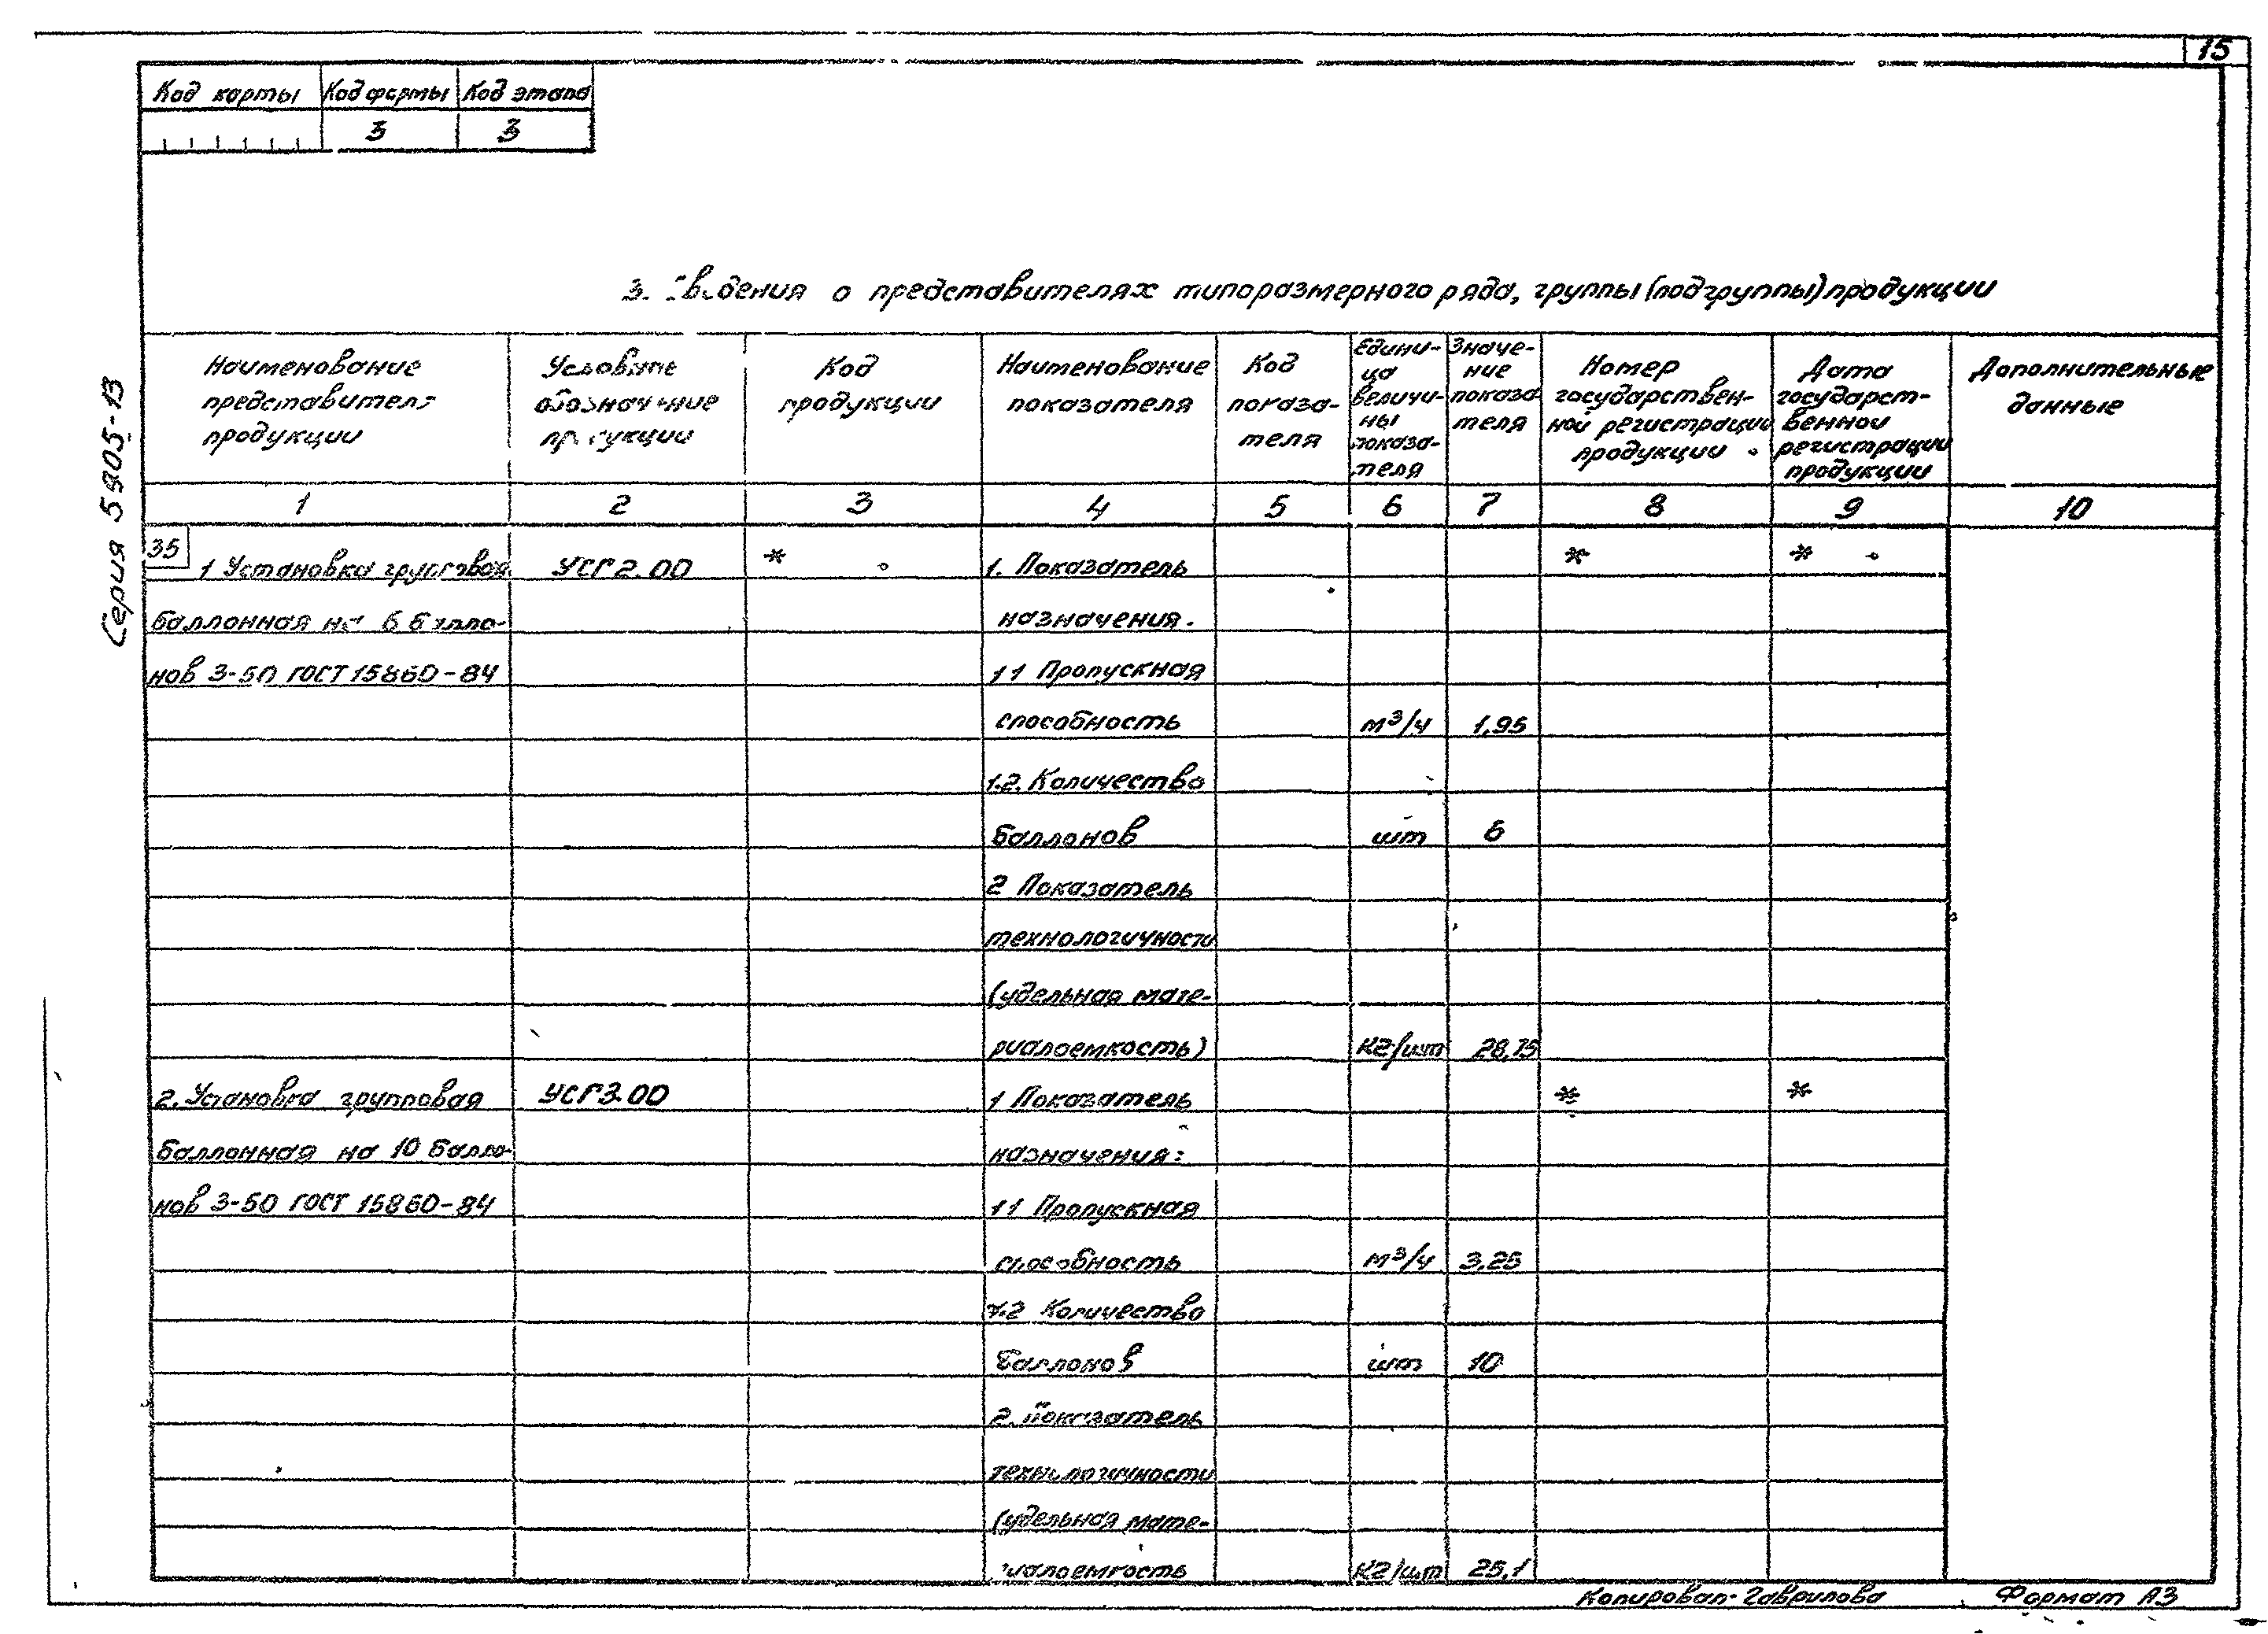 15
Код карты Код формы Код этапа
3 3
Серия 5.905-13
3. Сведения о представителях типоразмерного ряда, группы (подгруппы) продукции
Наименование представителя продукции
Условное обозначение продукции
Код продукции
Наименование показателя
Код показа-теля
Едини-ца величи-ны показа-теля
Значе-ние показа теля
Номер государствен-ной регистрации продукции
Дата государст-венной регистрации продукции
Дополнительные данные
1 2 3 4 5 6 7 8 9 10
35
1 Установка групповая УСГ 2.00 * 1. Показатель * *
баллонная на 6 балло- назначения.
нов 3-50 ГОСТ 15860-84 1 1 Пропускная
способность м³/ч 1,95
1.2. Количество
баллонов шт 6
2 Показатель
технологичности
(удельная мате-
риалоемкость) кг/шт 28,75
2. Установка групповая УСГ3.00 1 Показатель * *
баллонная на 10 балло- назначения:
нов 3-50 ГОСТ 15860-84 1 1 Пропускная
способность м³/ч 3,25
1.2 Количество
баллонов шт 10
2. Показатель
технологичности
(удельная мате-
риалоемкость кг/шт 25,1
Копировал- Гаврилова Формат А3